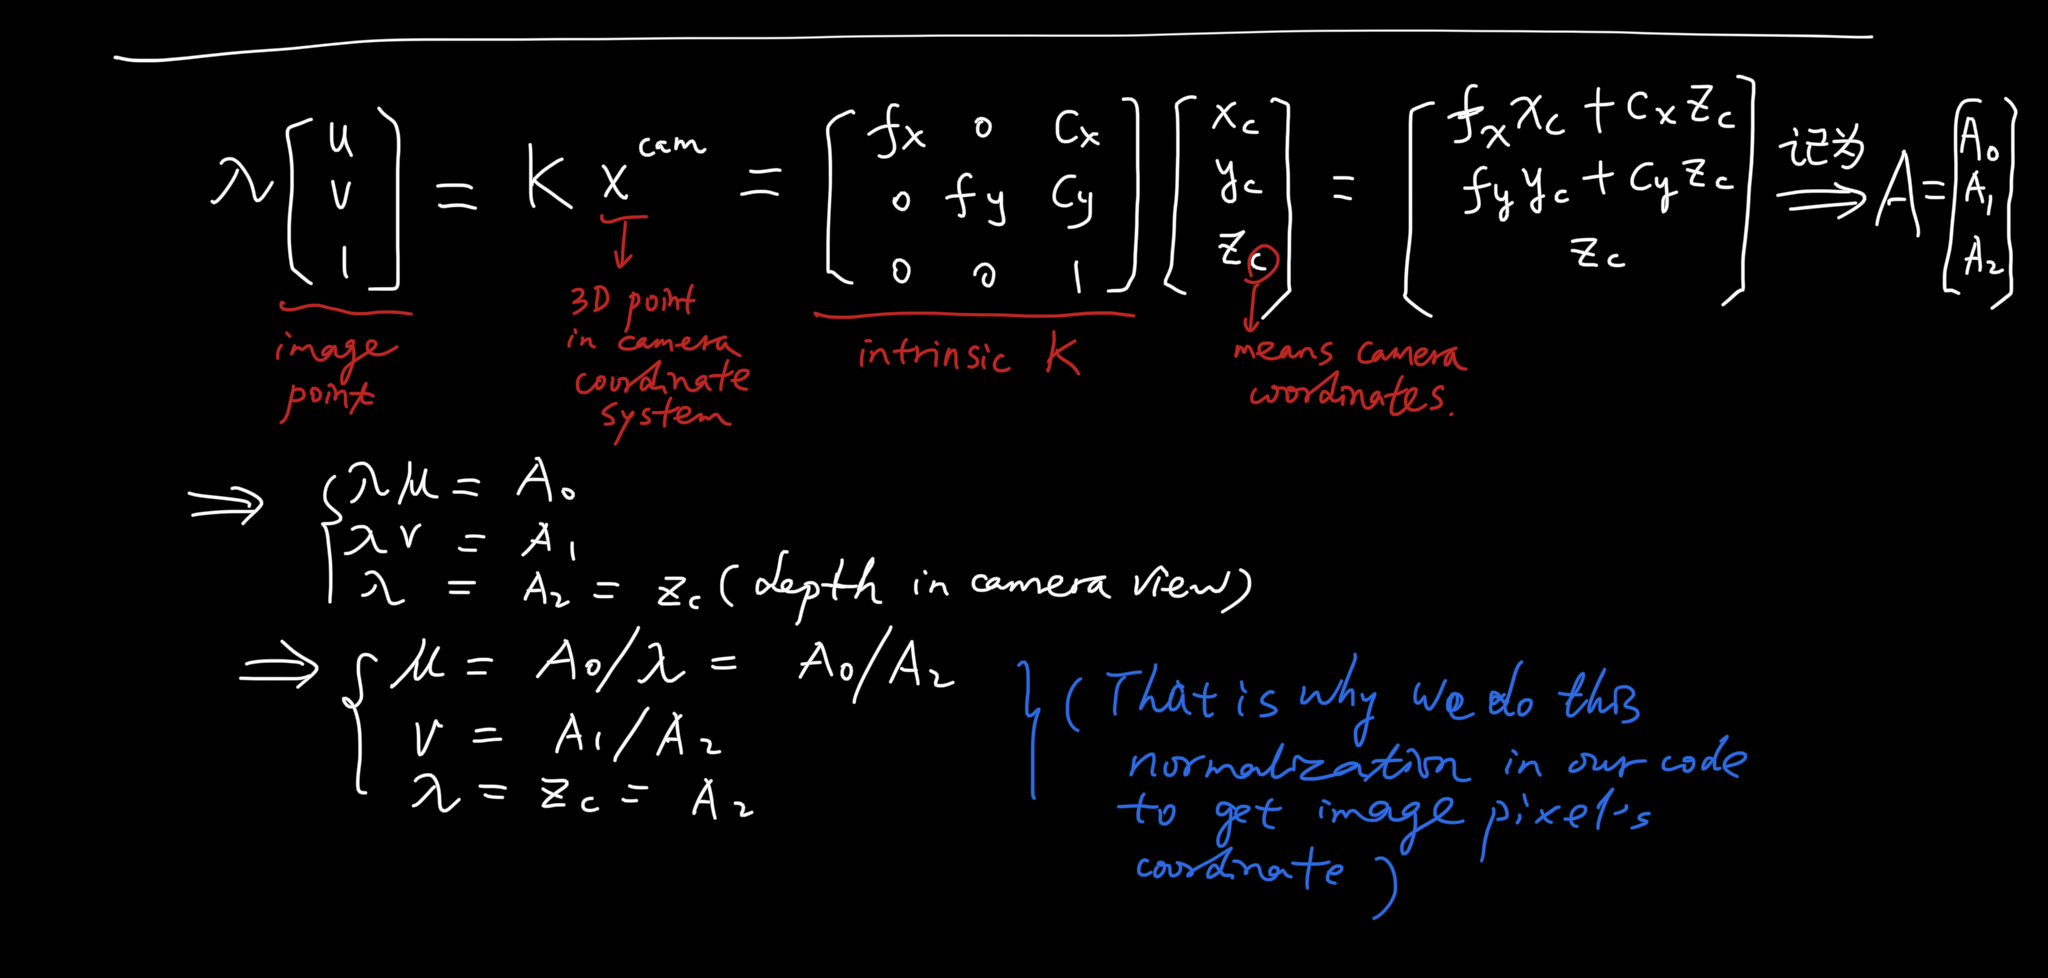 λ [u v 1] = K x^cam = [fx 0 Cx; 0 fy Cy; 0 0 1] [xc yc zc] = [fx xc + Cx zc; fy yc + Cy zc; zc] 记为 ⟹ A = [A0 A1 A2]
image
point
3D point
in camera
coordinate
system
intrinsic K
means camera
coordinates.
⟹ { λμ = A0
λv = A1
λ = A2 = zc (depth in camera view)
⟹ { μ = A0/λ = A0/A2
v = A1/A2
λ = zc = A2
} (That is why we do this
normalization in our code
to get image pixel's
coordinate)